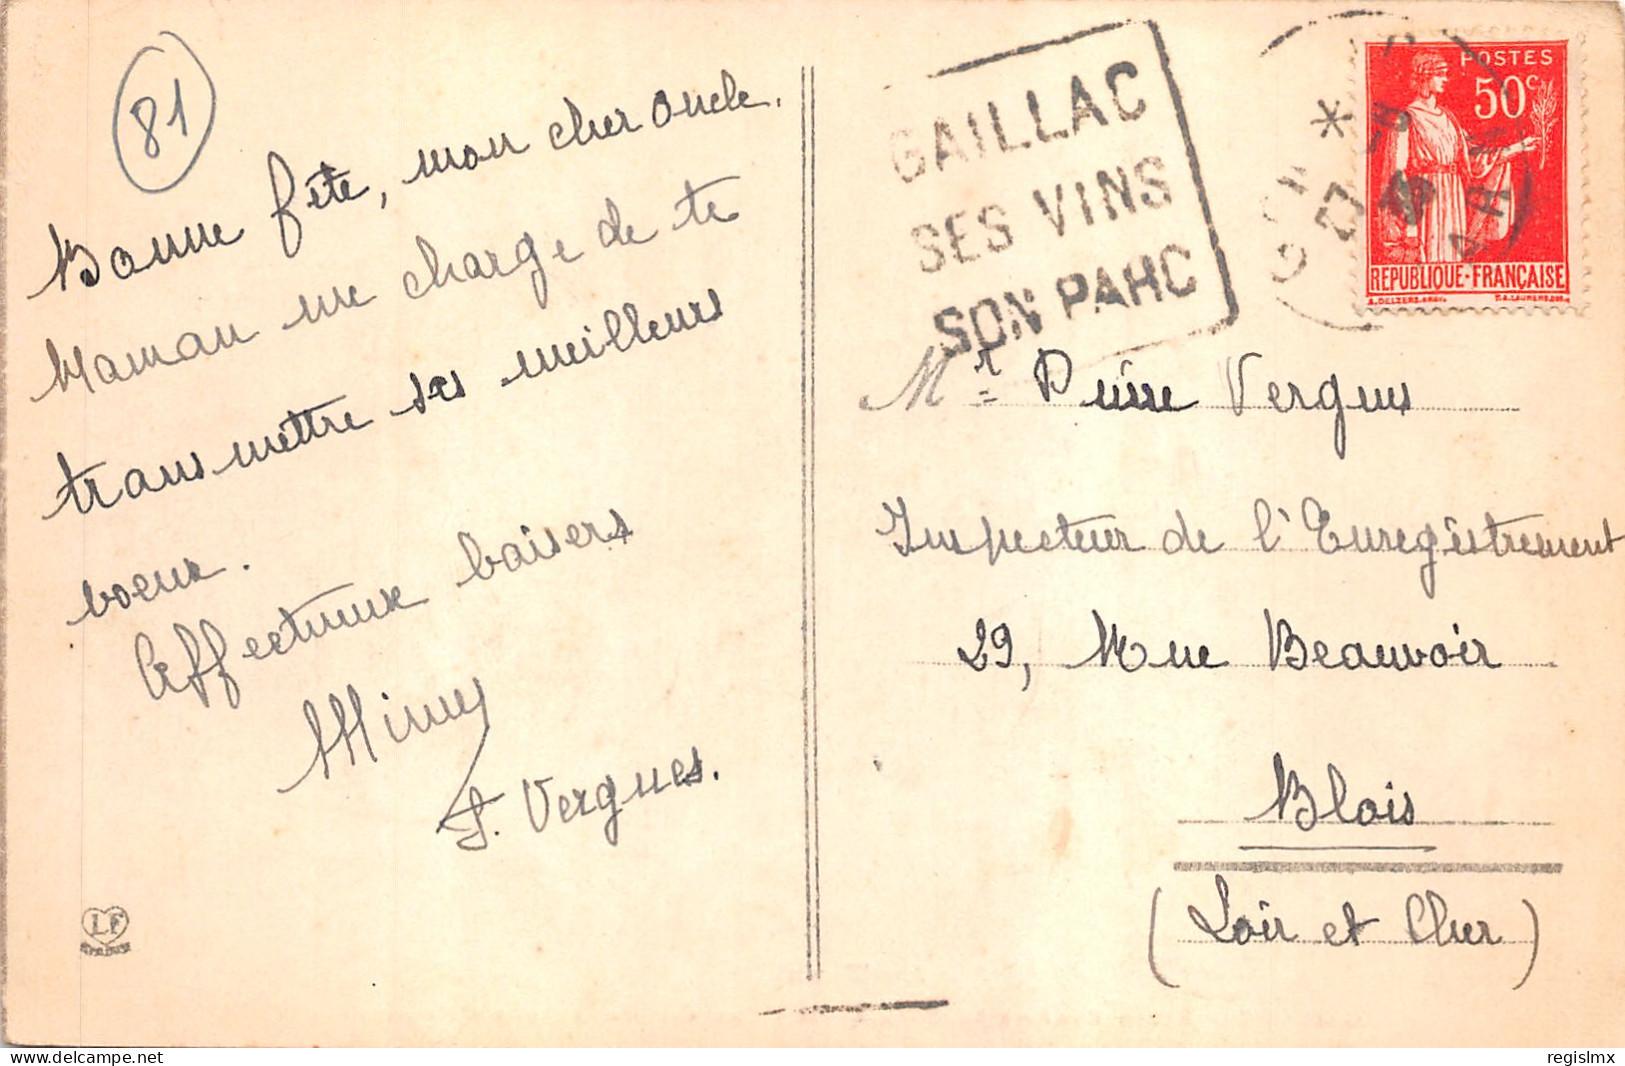 81
Bonne fête, mon cher oncle.
Maman me charge de te
transmettre ses meilleurs
voeux.
Affectueux baisers
Mimy
J. Vergnes.
LF
GAILLAC
SES VINS
SON PARC
POSTES
50c
REPUBLIQUE-FRANÇAISE
Mr Pierre Vergnes
Inspecteur de l'Enregistrement
29, Rue Beauvoir
Blois
(Loir et Cher)
www.delcampe.net
regislmx